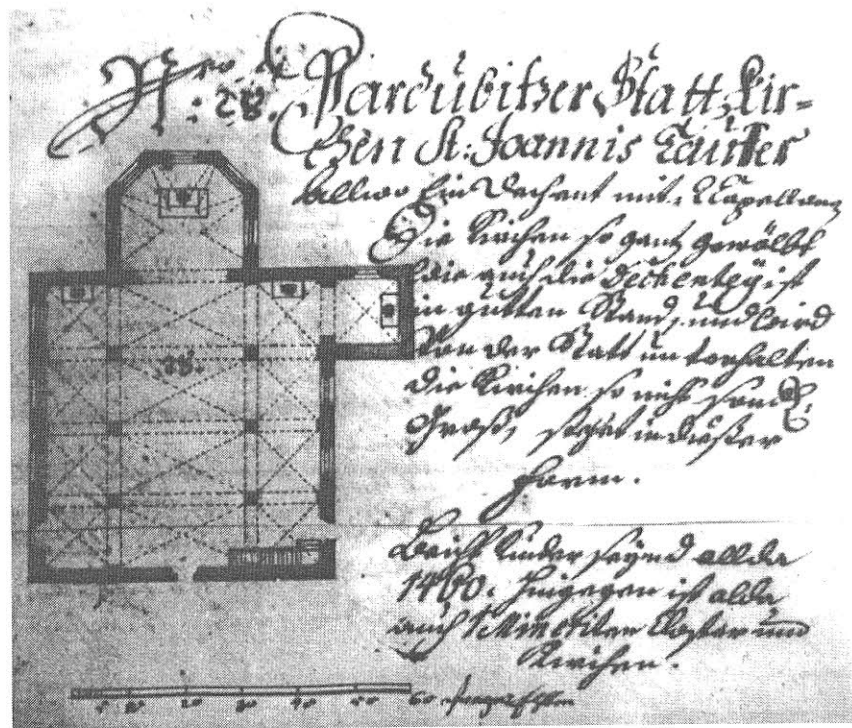 Nro 28. Pardubitzer Statt Kir=
chen St: Joannis Tauffer
allwo Ein Dechant mit Capellan
Die Kirchen so gantz gewölbt
wie auch die Dechentey ist
in gutten Stand, und wird
Von der Statt unterhalten
die Kirchen so nicht
Groß, stehet in dießer
form.
28.
Beicht Kinder seynd allda
1460. hingegen ist alda
auch 1 Minoriten Closter und
Kirchen.
5 10 20 30 40 50 60